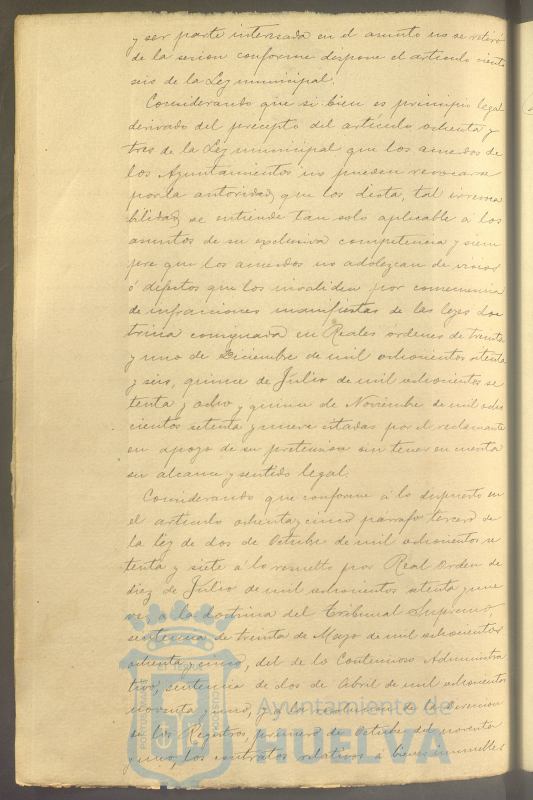 y ser parte interesada en el asunto no se retiró
de la sesion conforme dispone el articulo ciento
seis de la Ley municipal.
Considerando que si bien es principio legal
derivado del precepto del articulo ochenta y
tres de la Ley municipal que los acuerdos de
los Ayuntamientos no pueden revocarse
por la autoridad que los dicta, tal irrevoca
bilidad se entiende tan solo aplicable a los
asuntos de su esclusiva competencia y siem
pre que los acuerdos no adolezcan de vicios
ó defectos que los invaliden por
de infracciones manifiestas de las leyes doc
trina consignada en Reales órdenes de treinta
y uno de Diciembre de mil ochocientos setenta
y seis, quince de Julio de mil ochocientos se
tenta y ocho y quince de Noviembre de mil ocho
cientos setenta y nueve citadas por el reclamante
en apoyo de su pretension sin tener en cuenta
su alcance y sentido legal.
Considerando que conforme á lo dispuesto en
el articulo ochenta y cinco párrafo tercero de
la ley de dos de Octubre de mil ochocientos se
tenta y siete á lo resuelto por Real Orden de
diez de Julio de mil ochocientos setenta y nue
ve, a la doctrina del Tribunal Supremo
sentencia de treinta de Mayo de mil ochocientos
ochenta y cinco, del de lo Contencioso Administra
tivo, sentencia de dos de Abril de mil ochocientos
noventa y uno, y a la resolucion de la Direccion
de los Registros, primero de Octubre del noventa
y uno, los contratos relativos á bienes inmuebles
Ayuntamiento de
HUELVA